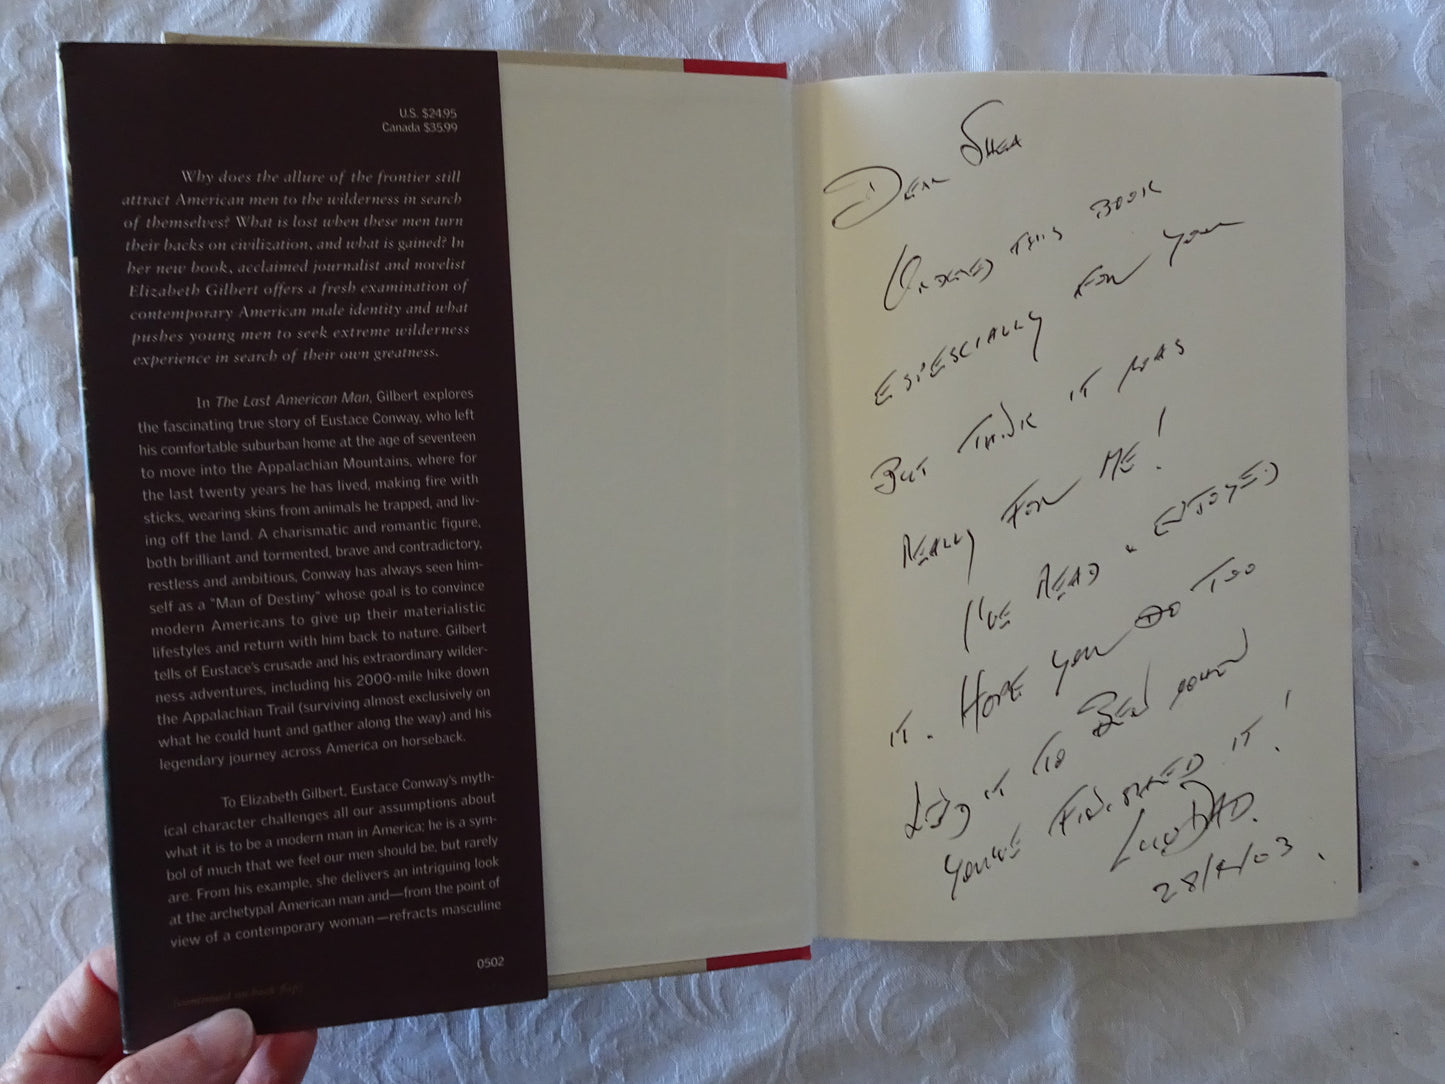 U.S. $24.95
Canada $35.99
Why does the allure of the frontier still
attract American men to the wilderness in search
of themselves? What is lost when these men turn
their backs on civilization, and what is gained? In
her new book, acclaimed journalist and novelist
Elizabeth Gilbert offers a fresh examination of
contemporary American male identity and what
pushes young men to seek extreme wilderness
experience in search of their own greatness.
In The Last American Man, Gilbert explores
the fascinating true story of Eustace Conway, who left
his comfortable suburban home at the age of seventeen
to move into the Appalachian Mountains, where for
the last twenty years he has lived, making fire with
sticks, wearing skins from animals he trapped, and liv-
ing off the land. A charismatic and romantic figure,
both brilliant and tormented, brave and contradictory,
restless and ambitious, Conway has always seen him-
self as a "Man of Destiny" whose goal is to convince
modern Americans to give up their materialistic
lifestyles and return with him back to nature. Gilbert
tells of Eustace's crusade and his extraordinary wilder-
ness adventures, including his 2000-mile hike down
the Appalachian Trail (surviving almost exclusively on
what he could hunt and gather along the way) and his
legendary journey across America on horseback.
To Elizabeth Gilbert, Eustace Conway's myth-
ical character challenges all our assumptions about
what it is to be a modern man in America; he is a sym-
bol of much that we feel our men should be, but rarely
are. From his example, she delivers an intriguing look
at the archetypal American man and—from the point of
view of a contemporary woman—refracts masculine
0502
(continued on back flap)
DEAR SHEA
ORDERED THIS BOOK
ESPESCIALLY FOR YOU
BUT THINK IT WAS
REALLY FOR ME!
I'VE READ & ENJOYED
IT. HOPE YOU DO TOO
LEND IT TO BEN WHEN
YOU'VE FINISHED IT!
DAD.
28/4/03.